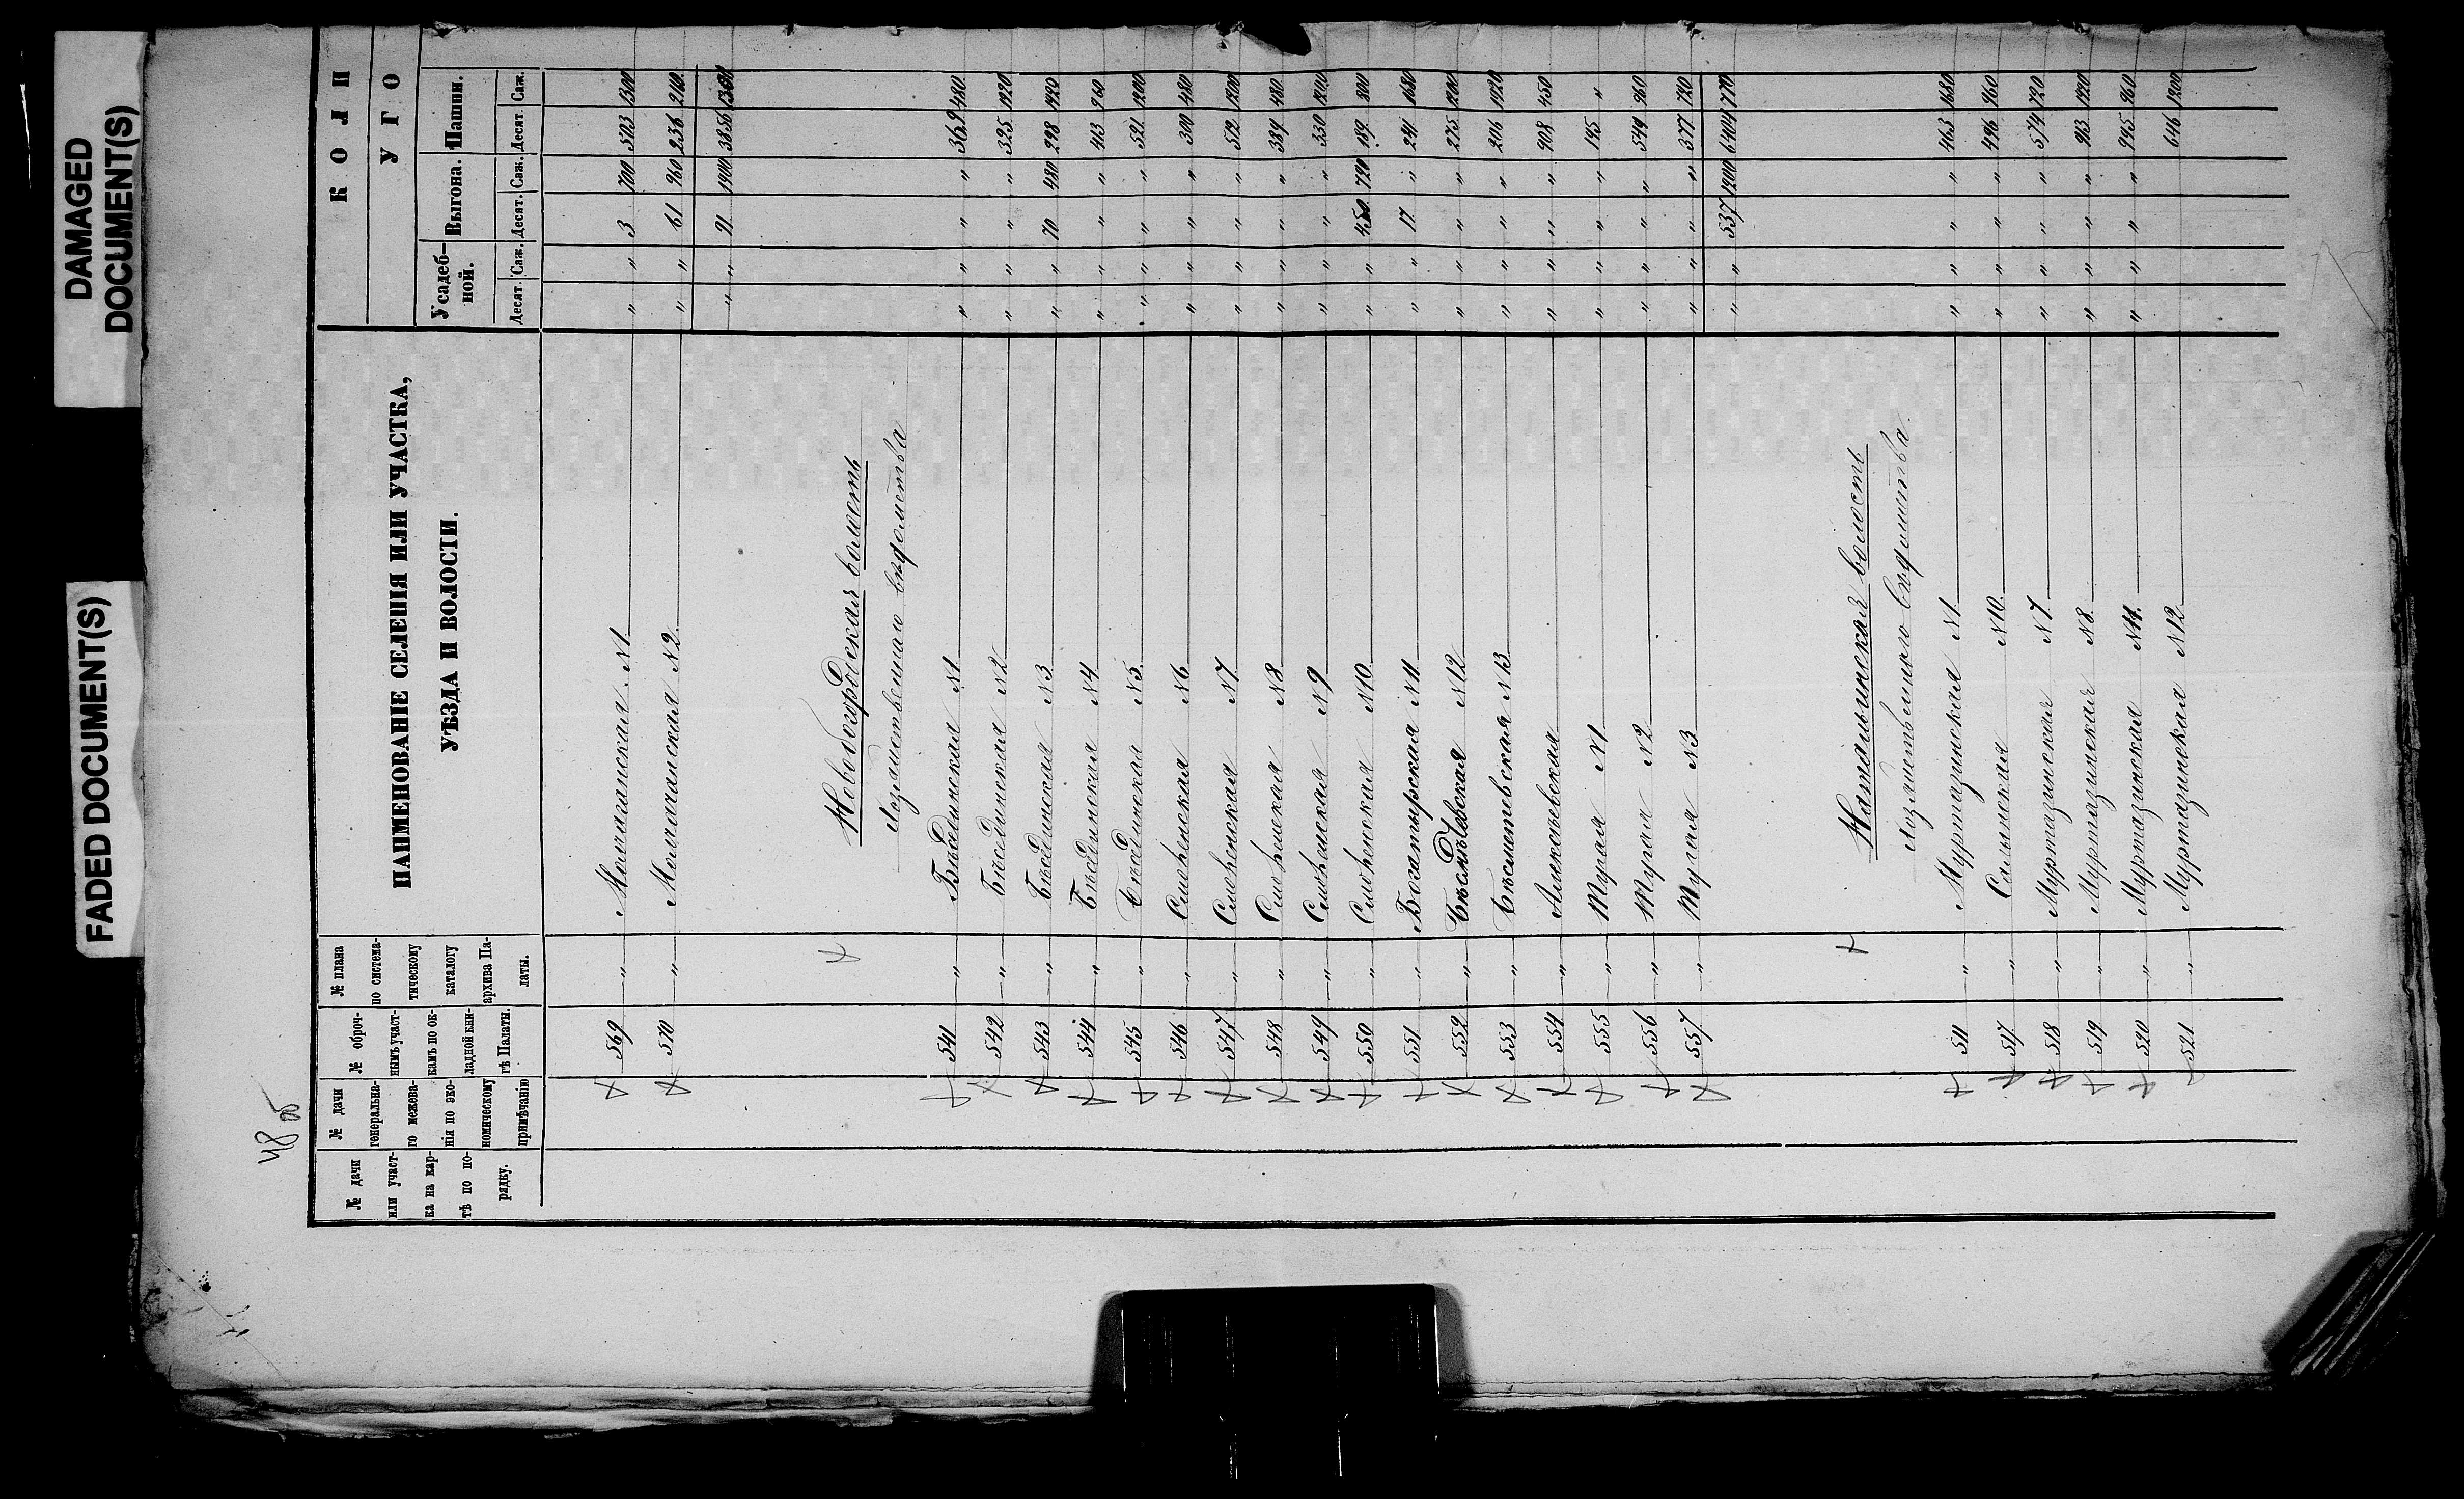 DAMAGED
DOCUMENT(S)
FADED DOCUMENT(S)
48 об
№ дачи или участ-ка на кар-тѣ по по-рядку.
№ дачи генеральна-го межева-нія по эко-номическому примѣчанію
№ оброч-нымъ участ-камъ по ок-ладной кни-гѣ Палаты.
№ плана по система-тическому каталогу архива Па-латы.
НАИМЕНОВАНІЕ СЕЛЕНІЯ ИЛИ УЧАСТКА,
УѢЗДА И ВОЛОСТИ.
К О Л И
У Г О
Усадеб-ной. Выгона. Пашни.
Десят. Саж. Десят. Саж. Десят. Саж.
569 " Молочанская №1 " " 3 700 503 1300
570 " Молочанская №2 " " 61 960 236 2160
" " 91 1900 3856
Новобогородская волость
Хозяйственнаго вѣдомства
541 " Бѣседи­нская №1 " " " " 369 480
542 " Бѣседи­нская №2 " " " " 325 1920
543 " Бѣседи­нская №3 " " 70 480 298 1920
544 " Бѣседи­нская №4 " " " " 413 960
545 " Бѣседи­нская №5 " " " " 521 1200
546 " №6 " " " " 300 480
547 " №7 " " " " 512 1200
548 " №8 " " " " 339 480
549 " №9 " " " " 330 1200
550 " №10 " " 450 720 189 800
551 " №11 " " 17 " 241 1680
552 " №12 " " " " 275 1200
553 " №13 " " " " 206 1920
554 " Алексѣевская " " " " 908 450
555 " Тугая №1 " " " " 145 "
556 " Тугая №2 " " " " 549 960
557 " Тугая №3 " " " " 377 720
" " 537 1200 6404 770
Натальинская волость
Хозяйственнаго вѣдомства
511 " Муртазинская №1 " " " " 463 1680
517 " Салынская №10 " " " " 496 960
518 " Муртазинская №7 " " " " 574 720
519 " Муртазинская №8 " " " " 913 1920
520 " Муртазинская №11 " " " " 945 960
521 " Муртазинская №12 646 1200